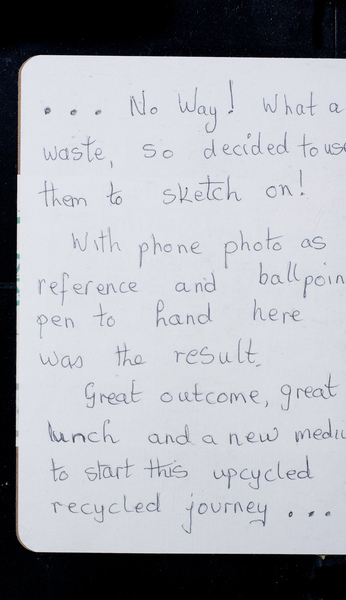 . . . No Way! What a
waste, so decided to use
them to sketch on!
With phone photo as
reference and ballpoin
pen to hand here
was the result.
Great outcome, great
lunch and a new mediu
to start this upcycled
recycled journey . . .